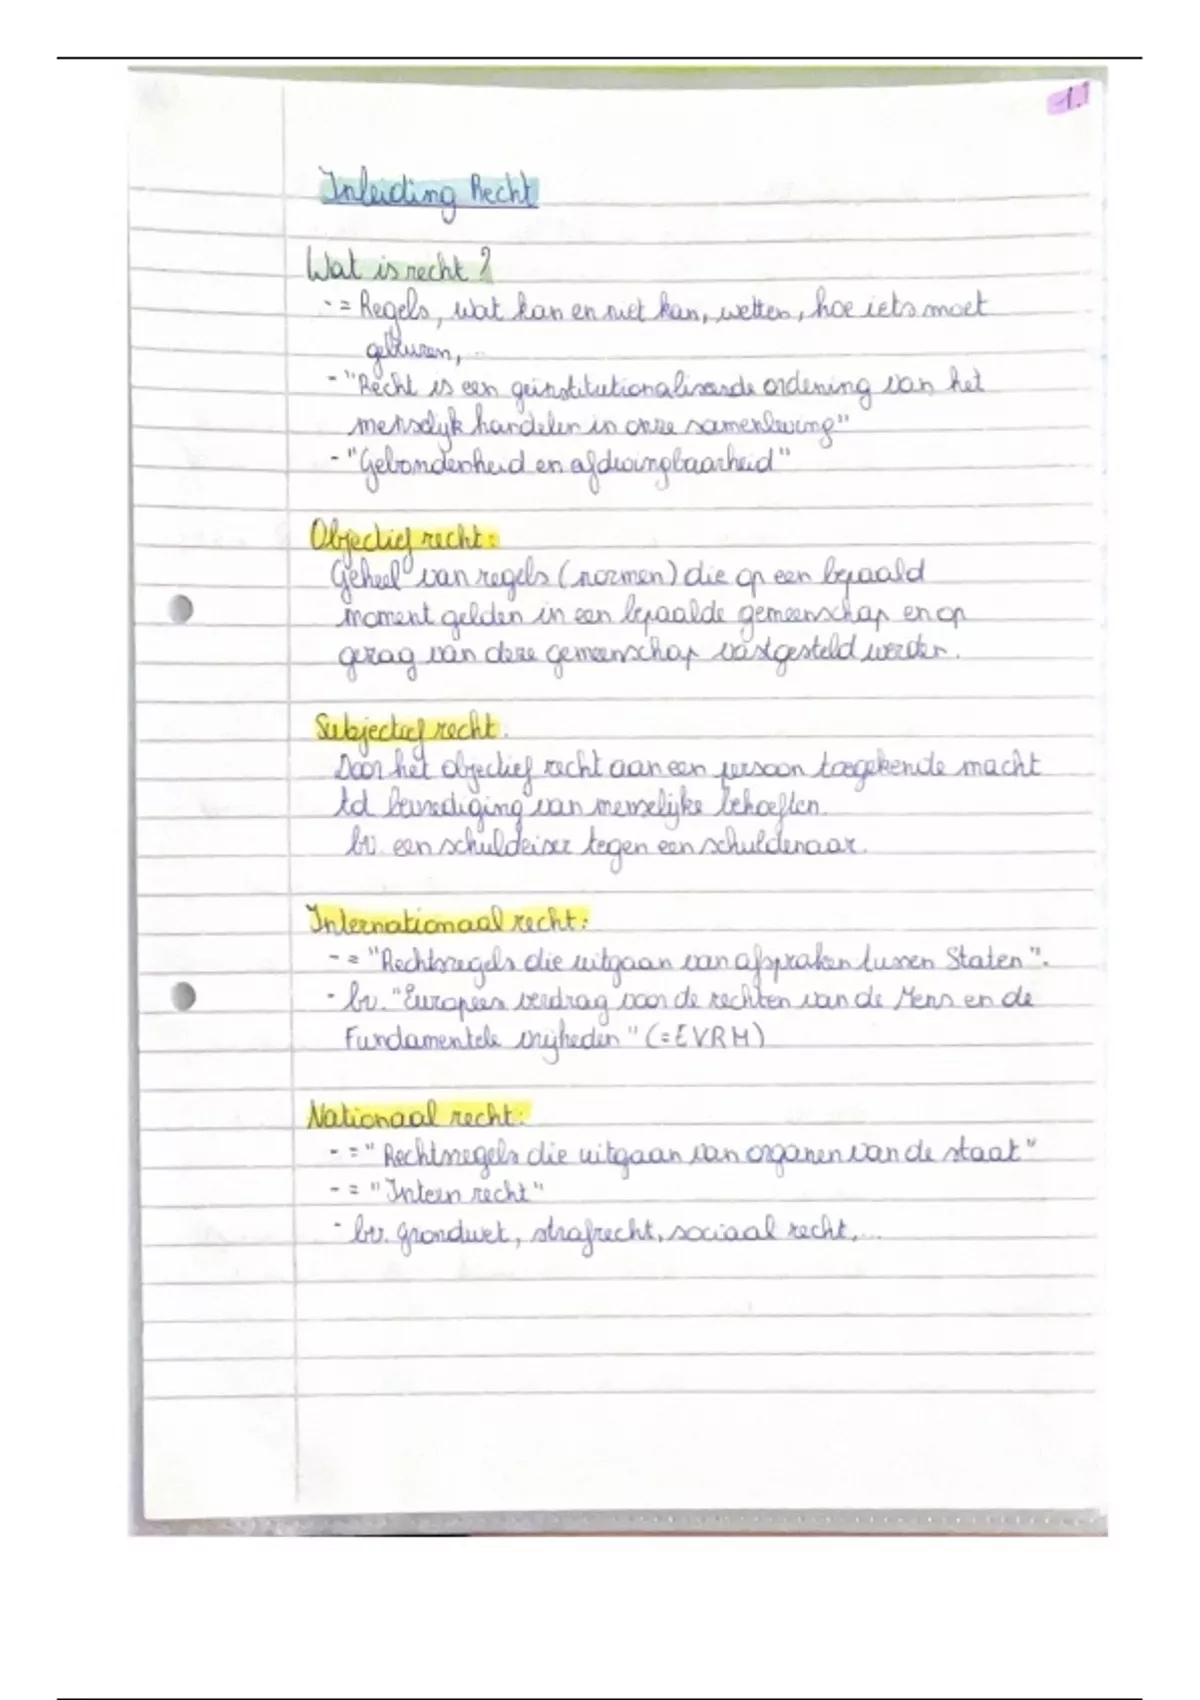 1.1
Inleiding Recht
Wat is recht?
- = Regels, wat kan en niet kan, wetten, hoe iets moet
gebeuren, ...
- "Recht is een geïnstitutionaliseerde ordening van het
menselijk handelen in onze samenleving"
- "Gebondenheid en afdwingbaarheid"
Objectief recht:
Geheel van regels (normen) die op een bepaald
moment gelden in een bepaalde gemeenschap en op
gezag van deze gemeenschap vastgesteld werden.
Subjectief recht.
Door het objectief recht aan een persoon toegekende macht
tot bevrediging van menselijke behoeften.
bv. een schuldeiser tegen een schuldenaar.
Internationaal recht:
- = "Rechtsregels die uitgaan van afspraken tussen Staten".
- bv. "Europees verdrag voor de rechten van de Mens en de
Fundamentele vrijheden" (=EVRM)
Nationaal recht:
- = "Rechtsregels die uitgaan van organen van de staat"
- = "Intern recht"
- bv. grondwet, strafrecht, sociaal recht, ...